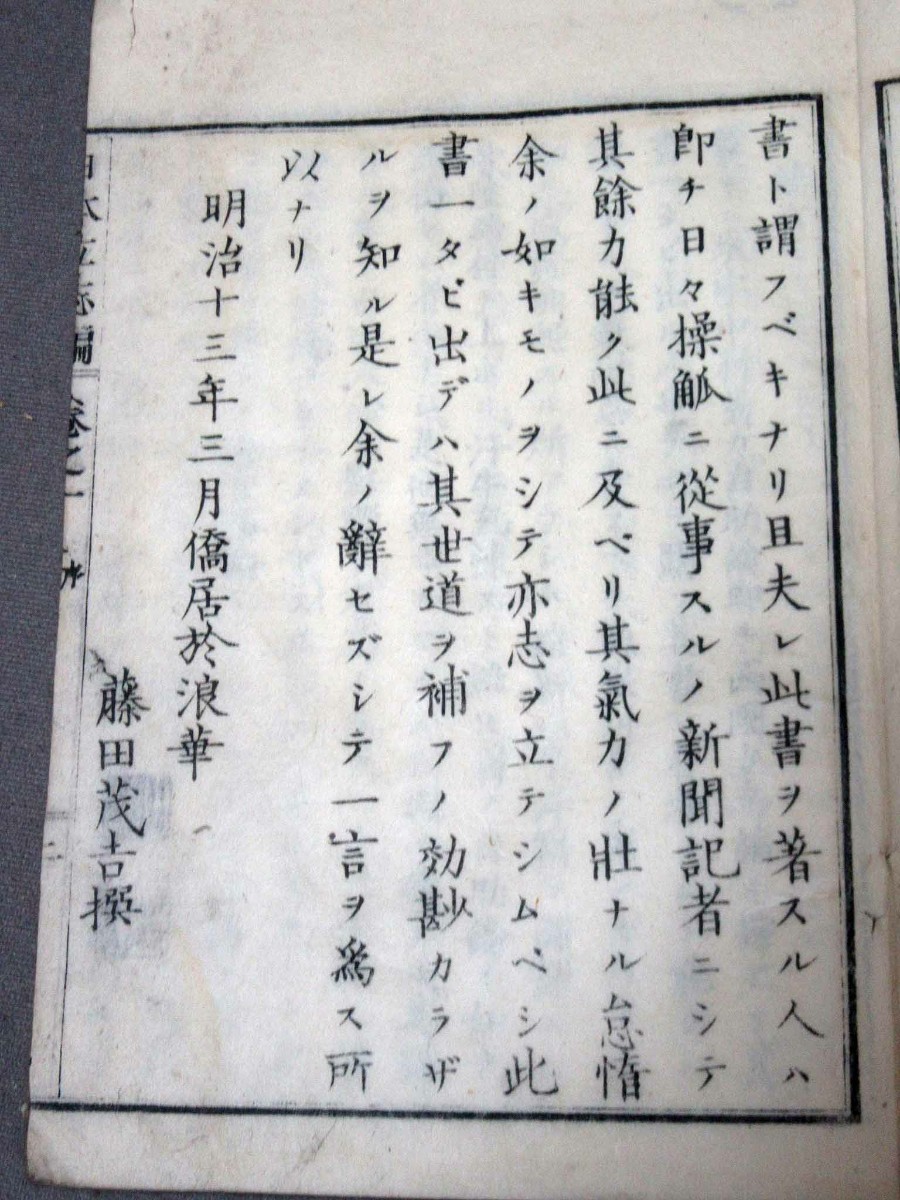 書ト謂フベキナリ且夫レ此書ヲ著スル人ハ
卽チ日々操觚ニ從事スルノ新聞記者ニシテ
其餘力能ク此ニ及ベリ其氣力ノ壯ナル怠惰
余ノ如キモノヲシテ亦志ヲ立テシムベシ此
書一タビ出デハ其世道ヲ補フノ効尠カラザ
ルヲ知ル是レ余ノ辭セズシテ一言ヲ爲ス所
以ナリ
明治十三年三月僑居於浪華
藤田茂吉撰
日本立志編 卷之一 序 二